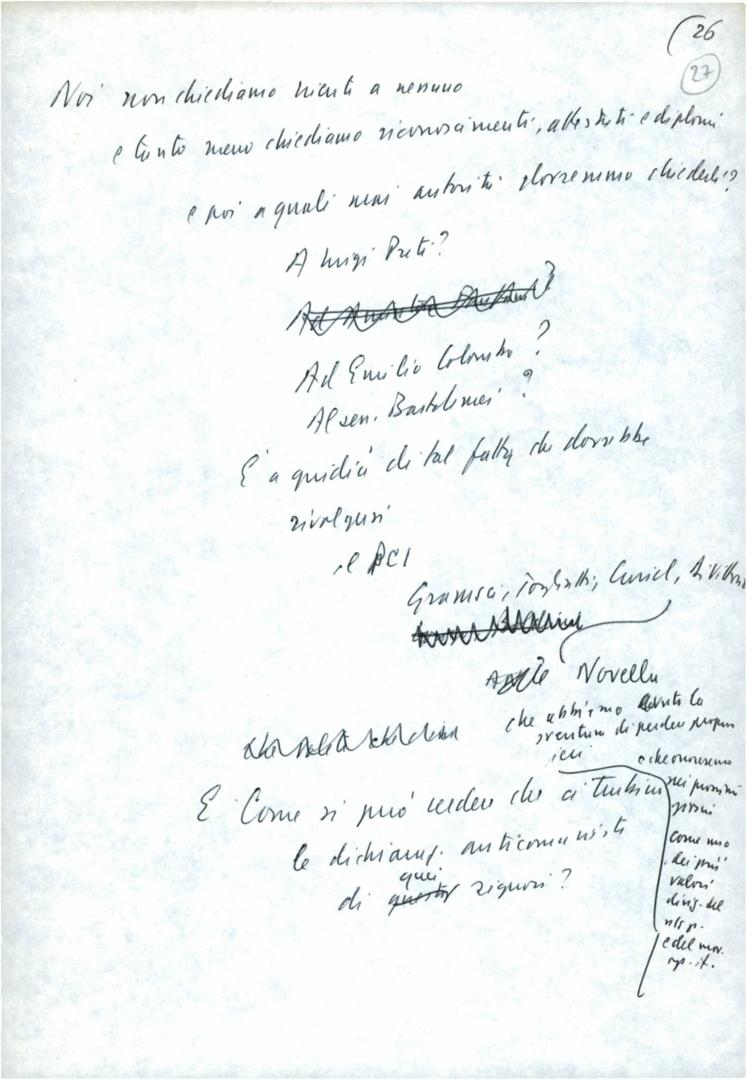 26
27
Noi non chiediamo niente a nessuno
e tanto meno chiediamo riconoscimenti, attestati e diplomi
e poi a quali mai autorità dovremmo chiederli?
A Luigi Preti?
Ad Emilio Colombo?
Al sen. Bartolomei?
E' a giudici di tal fatta che dovrebbe
rivolgersi
il PCI
Gramsci, Togliatti, Curiel, Di Vittorio
Novella
che abbiamo avuto la
sventura di perdere proprio
ieri
e che onoreremo
nei prossimi
giorni
come uno
dei più
valorosi
dirig. del
ns p.
e del mov.
op. it.
E Come si può credere che ci turbino
le dichiaraz. anticomuniste
di quei signori?